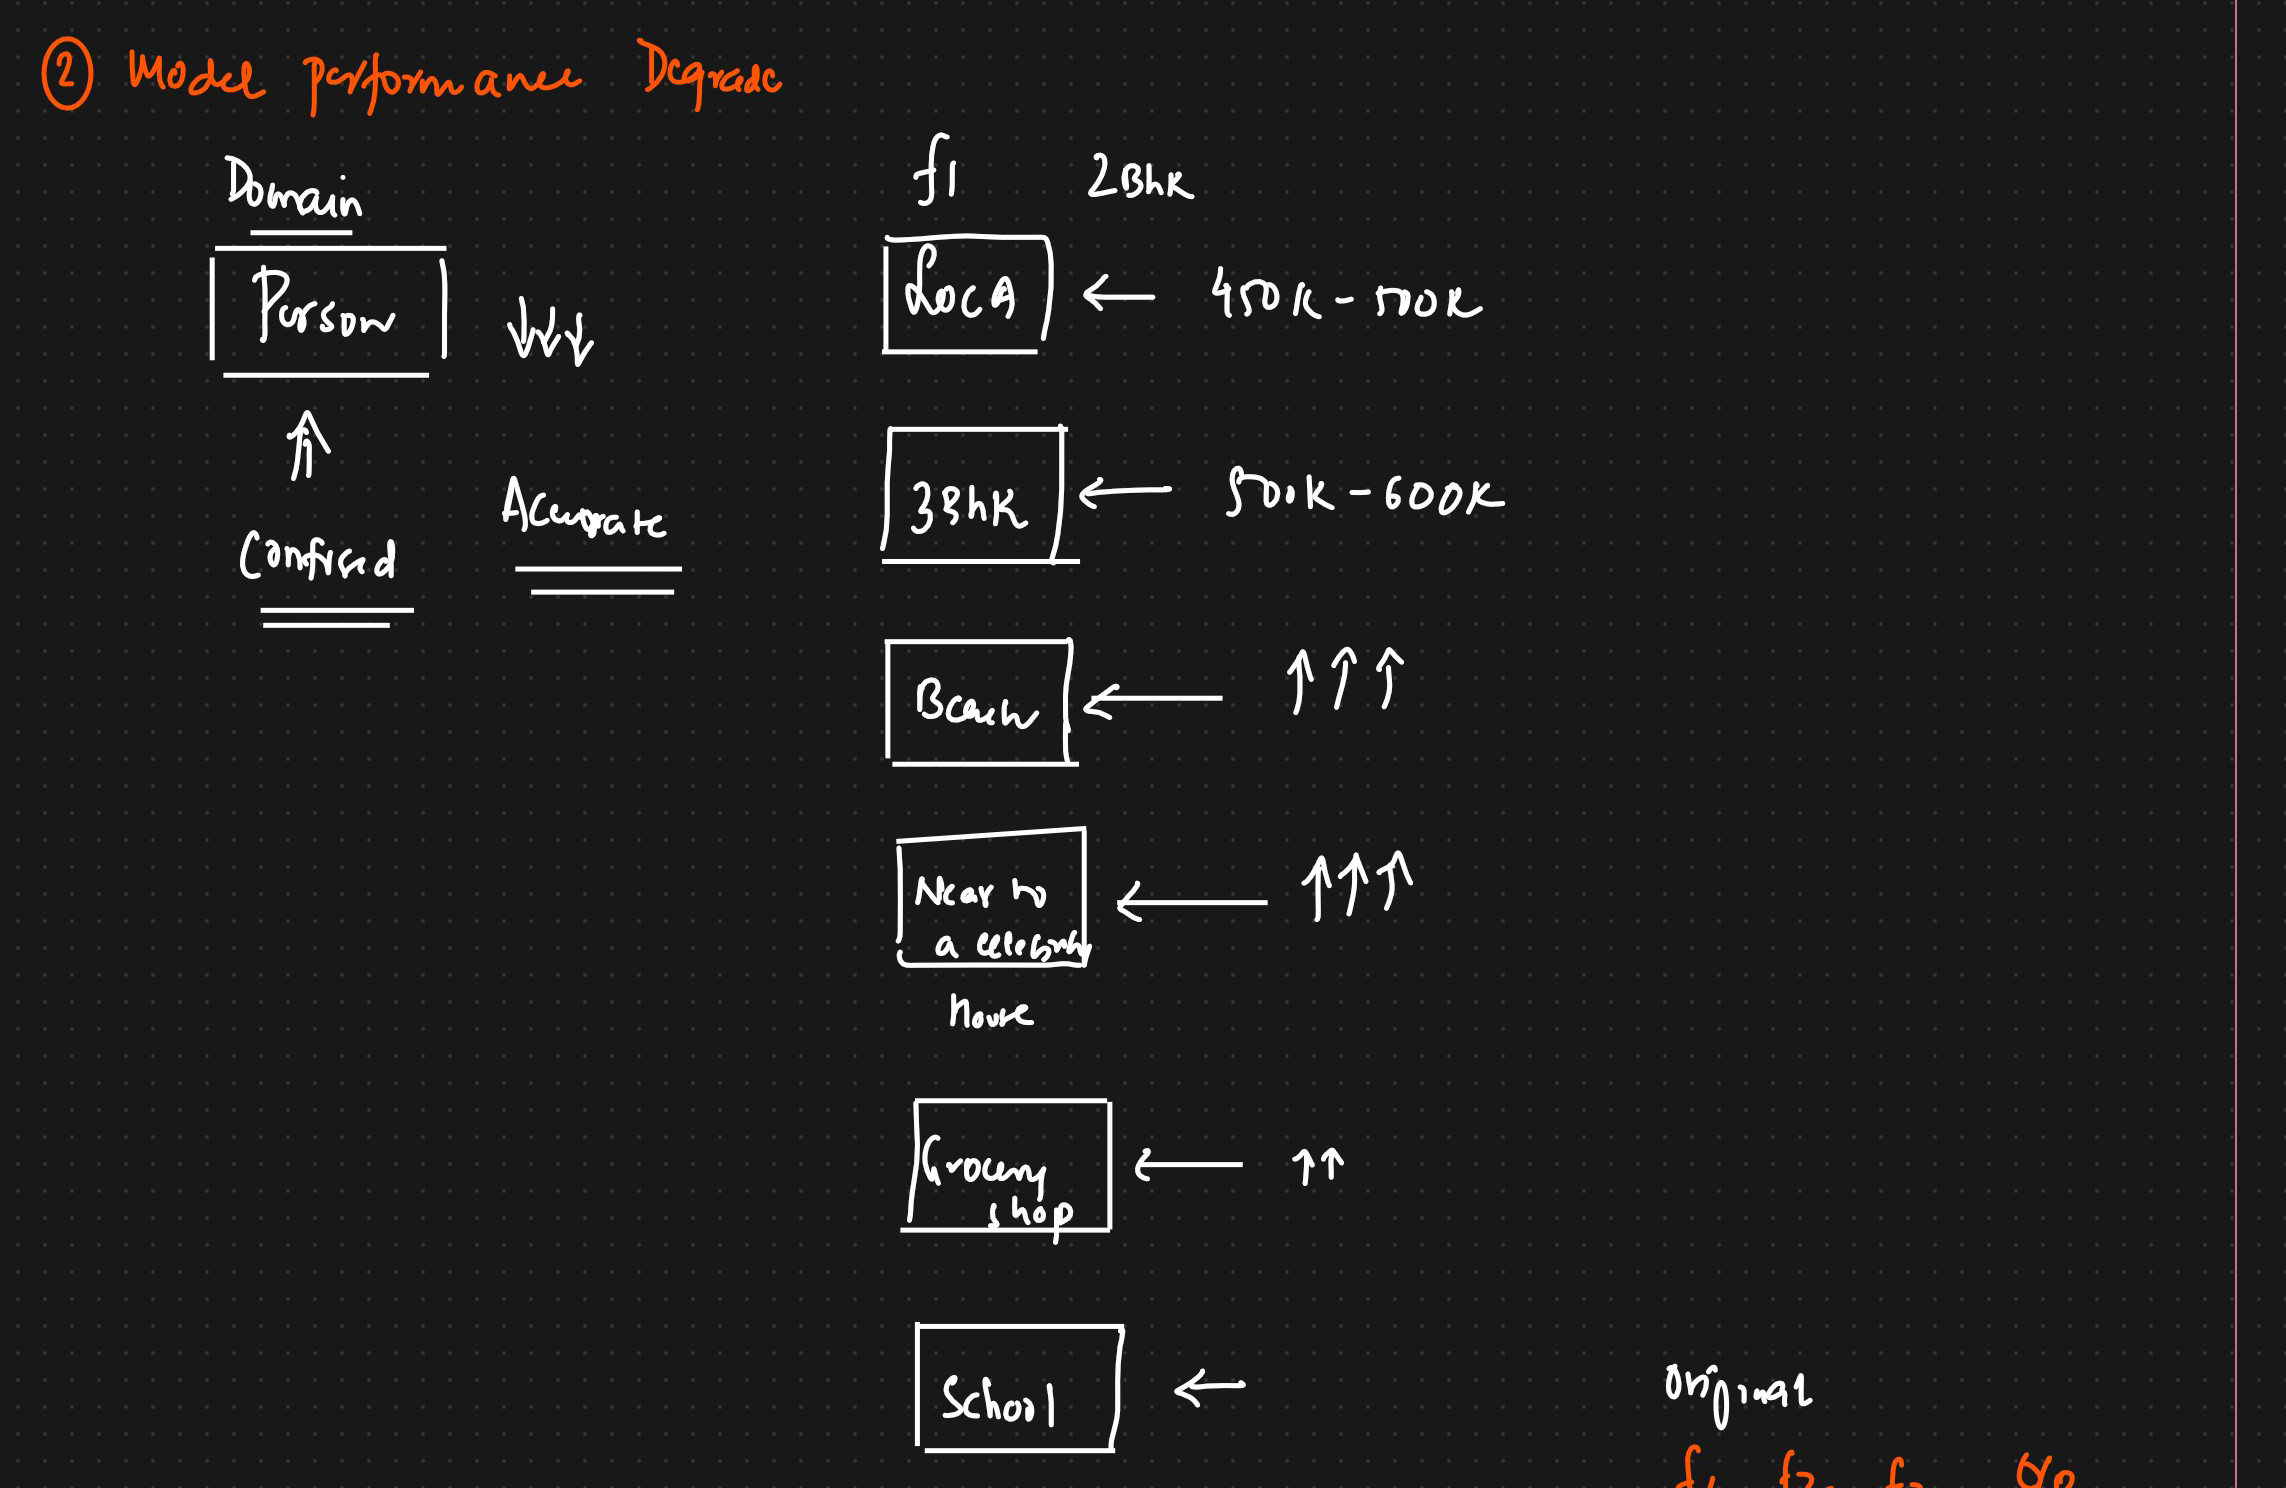 ② Model performance Degrade
Domain
Person
Confused
Accurate
f1 2BhK
Loc A ← 450K - 500K
3BhK ← 500K - 600K
Beach ← ↑↑↑
Near to
a celebrity
house
← ↑↑↑
Grocery
shop
← ↑↑
School ←
Original
f1 f2 f3